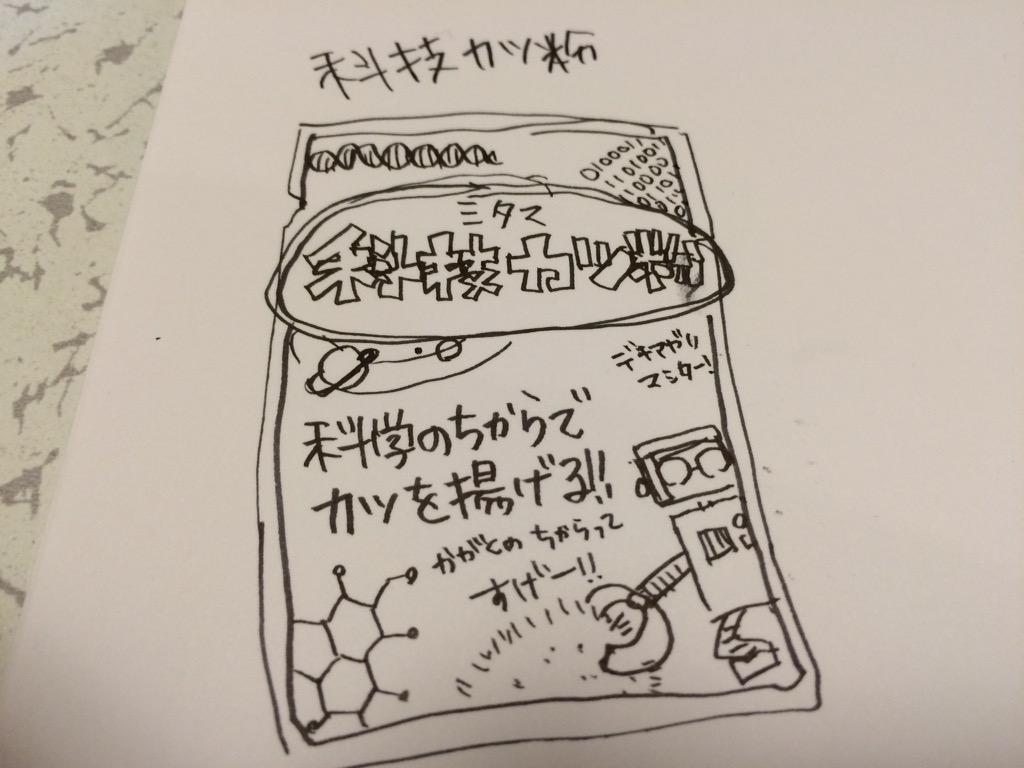 科技カツ粉
ミタス
科技カツ粉
デキアガリ
マシター!
科学のちからで
カツを揚げる!!
かがくの ちからって
すげー!!